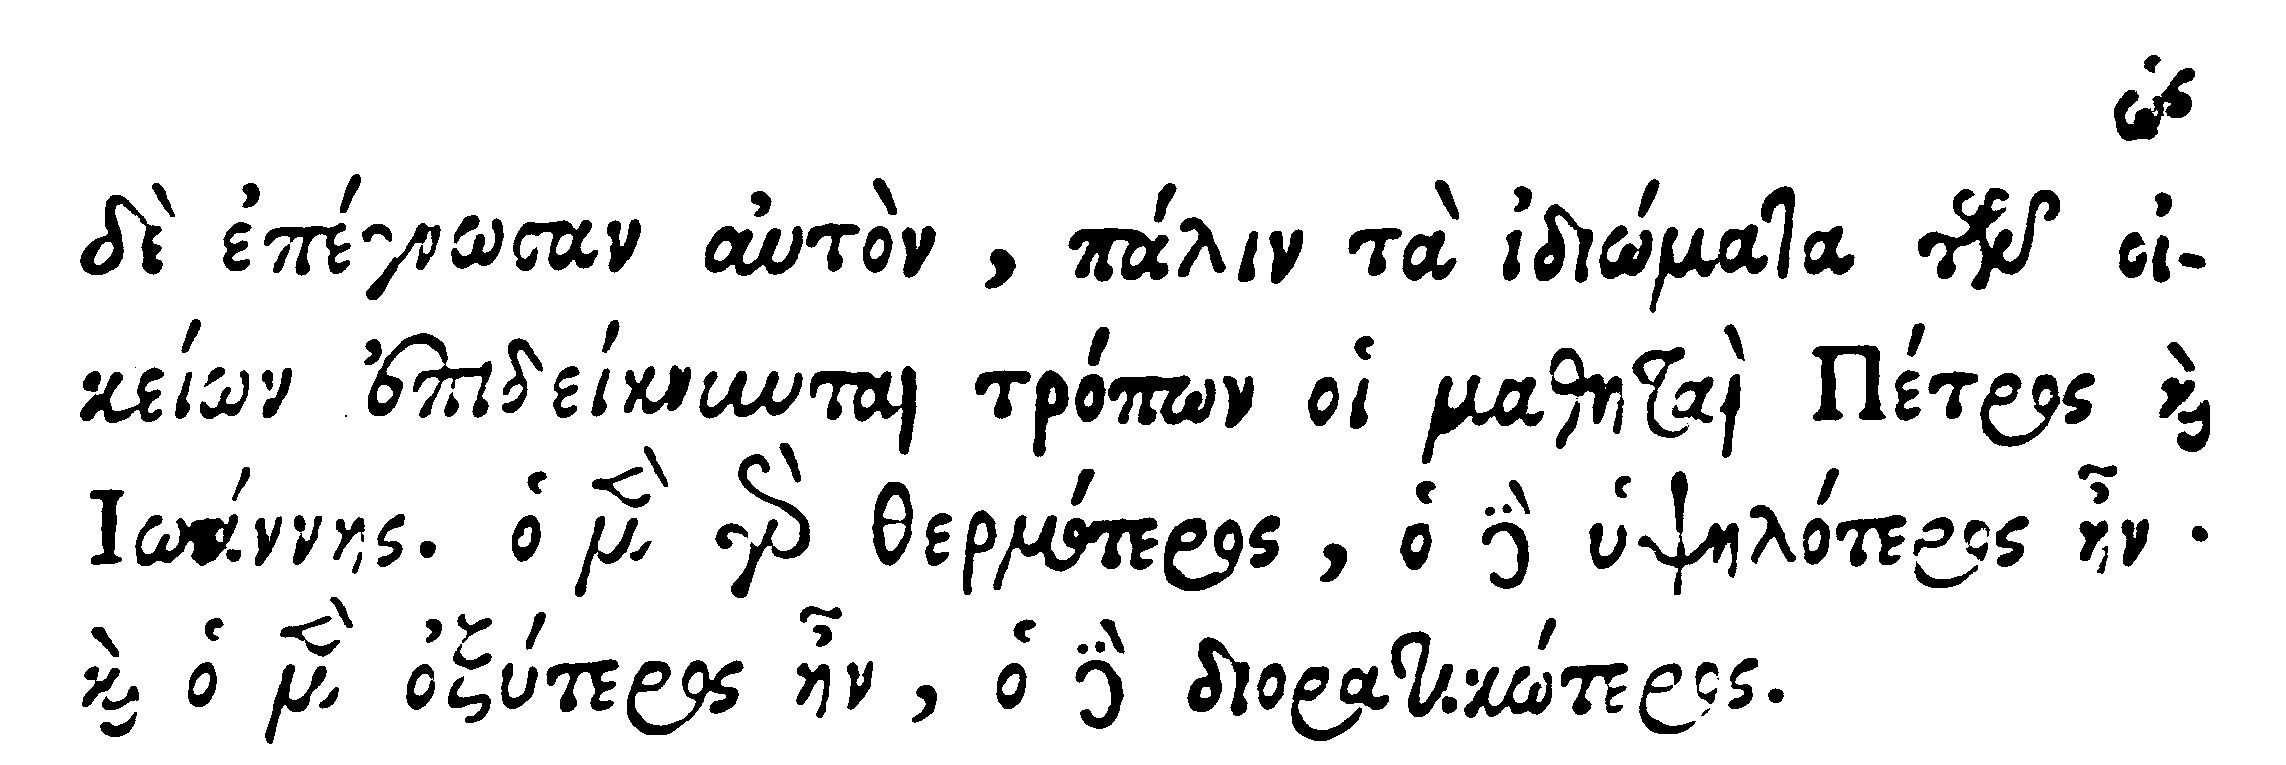 ὡς
δὲ ἐπέγνωσαν αὐτὸν, πάλιν τὰ ἰδιώματα τῶν οἰ-
κείων ἐπιδείκνυνται τρόπων οἱ μαθηταὶ Πέτρος καὶ
Ἰωάννης. ὁ μὲν γὰρ θερμότερος, ὁ δὲ ὑψηλότερος ἦν.
καὶ ὁ μὲν ὀξύτερος ἦν, ὁ δὲ διορατικώτερος.